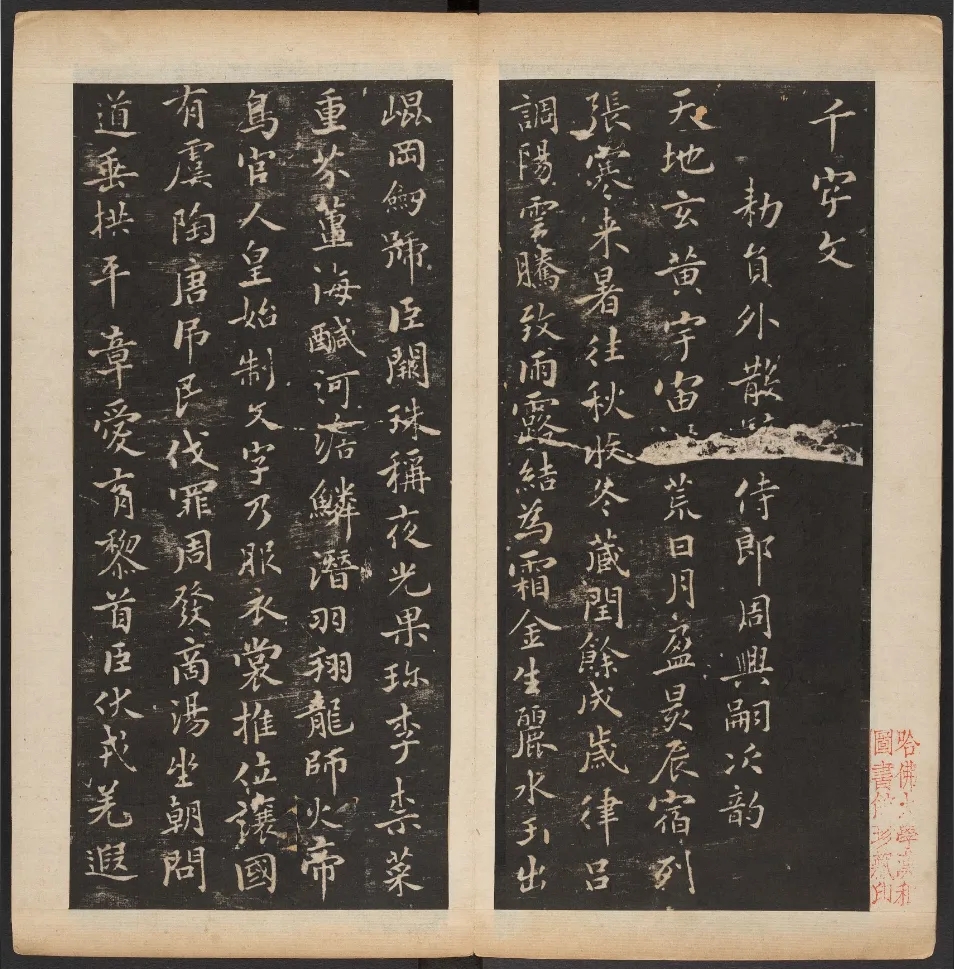 千字文
勅員外散侍郎周興嗣次韵
天地玄黄宇宙荒日月盈昃辰宿列
張寒来暑往秋收冬蔵閏餘成歲律吕
調陽雲騰致雨露結為霜金生麗水玉出
崐岡劒號巨闕珠稱夜光果珎李柰菜
重芥薑海醎河淡鱗潛羽翔龍師火帝
鳥官人皇始制文字乃服衣裳推位讓國
有虞陶唐吊民伐罪周發商湯坐朝問
道垂拱平章愛育黎首臣伏戎羌遐
哈佛大學漢和
圖書館珍藏印